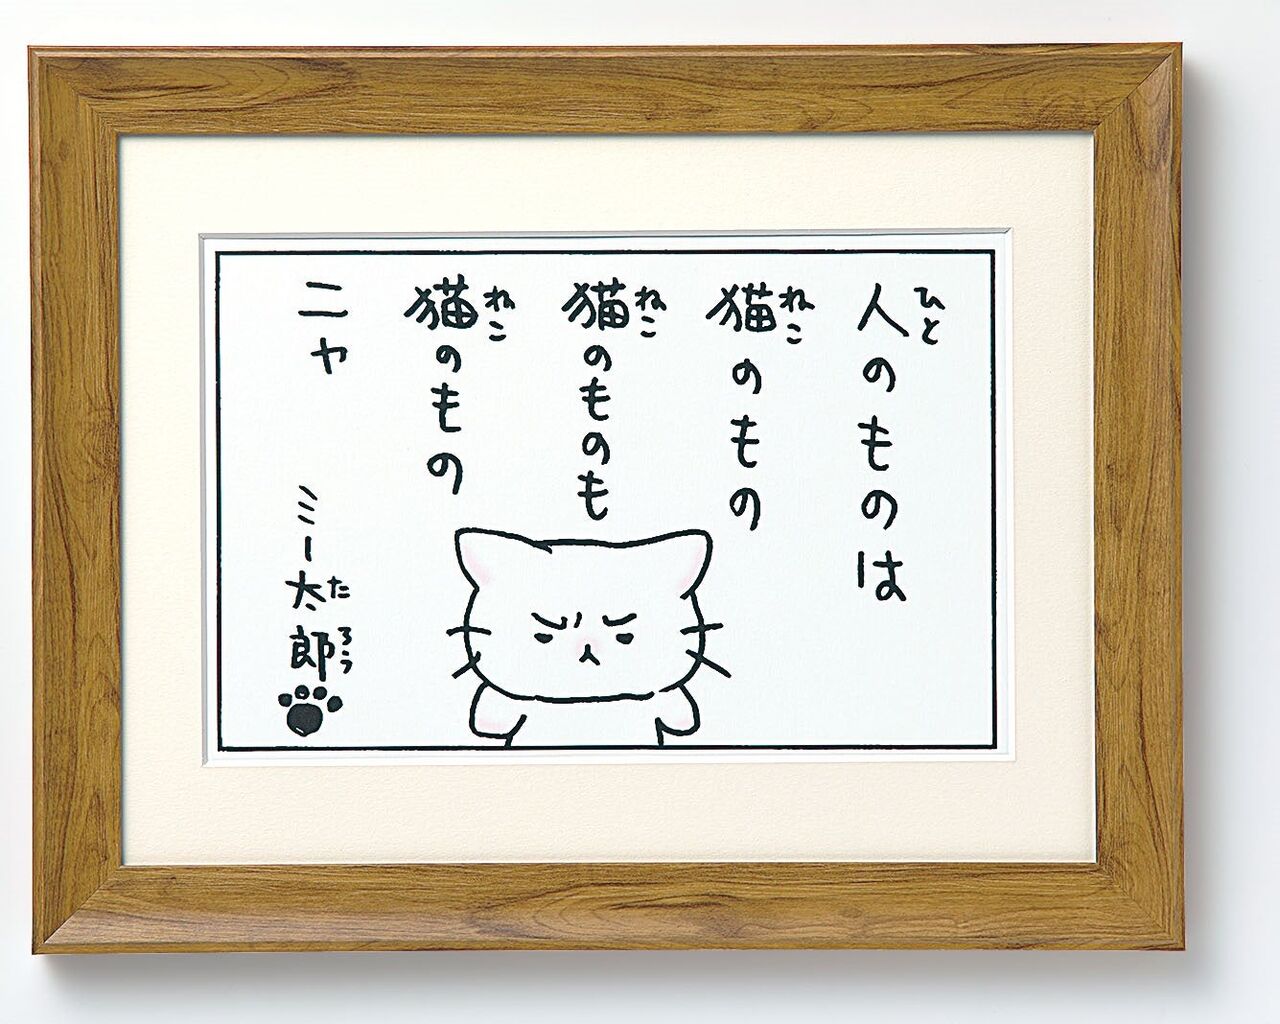 人のものは
ひと
猫のもの
ねこ
猫のものも
ねこ
猫のもの
ねこ
ニャ
ミー太郎
たろう